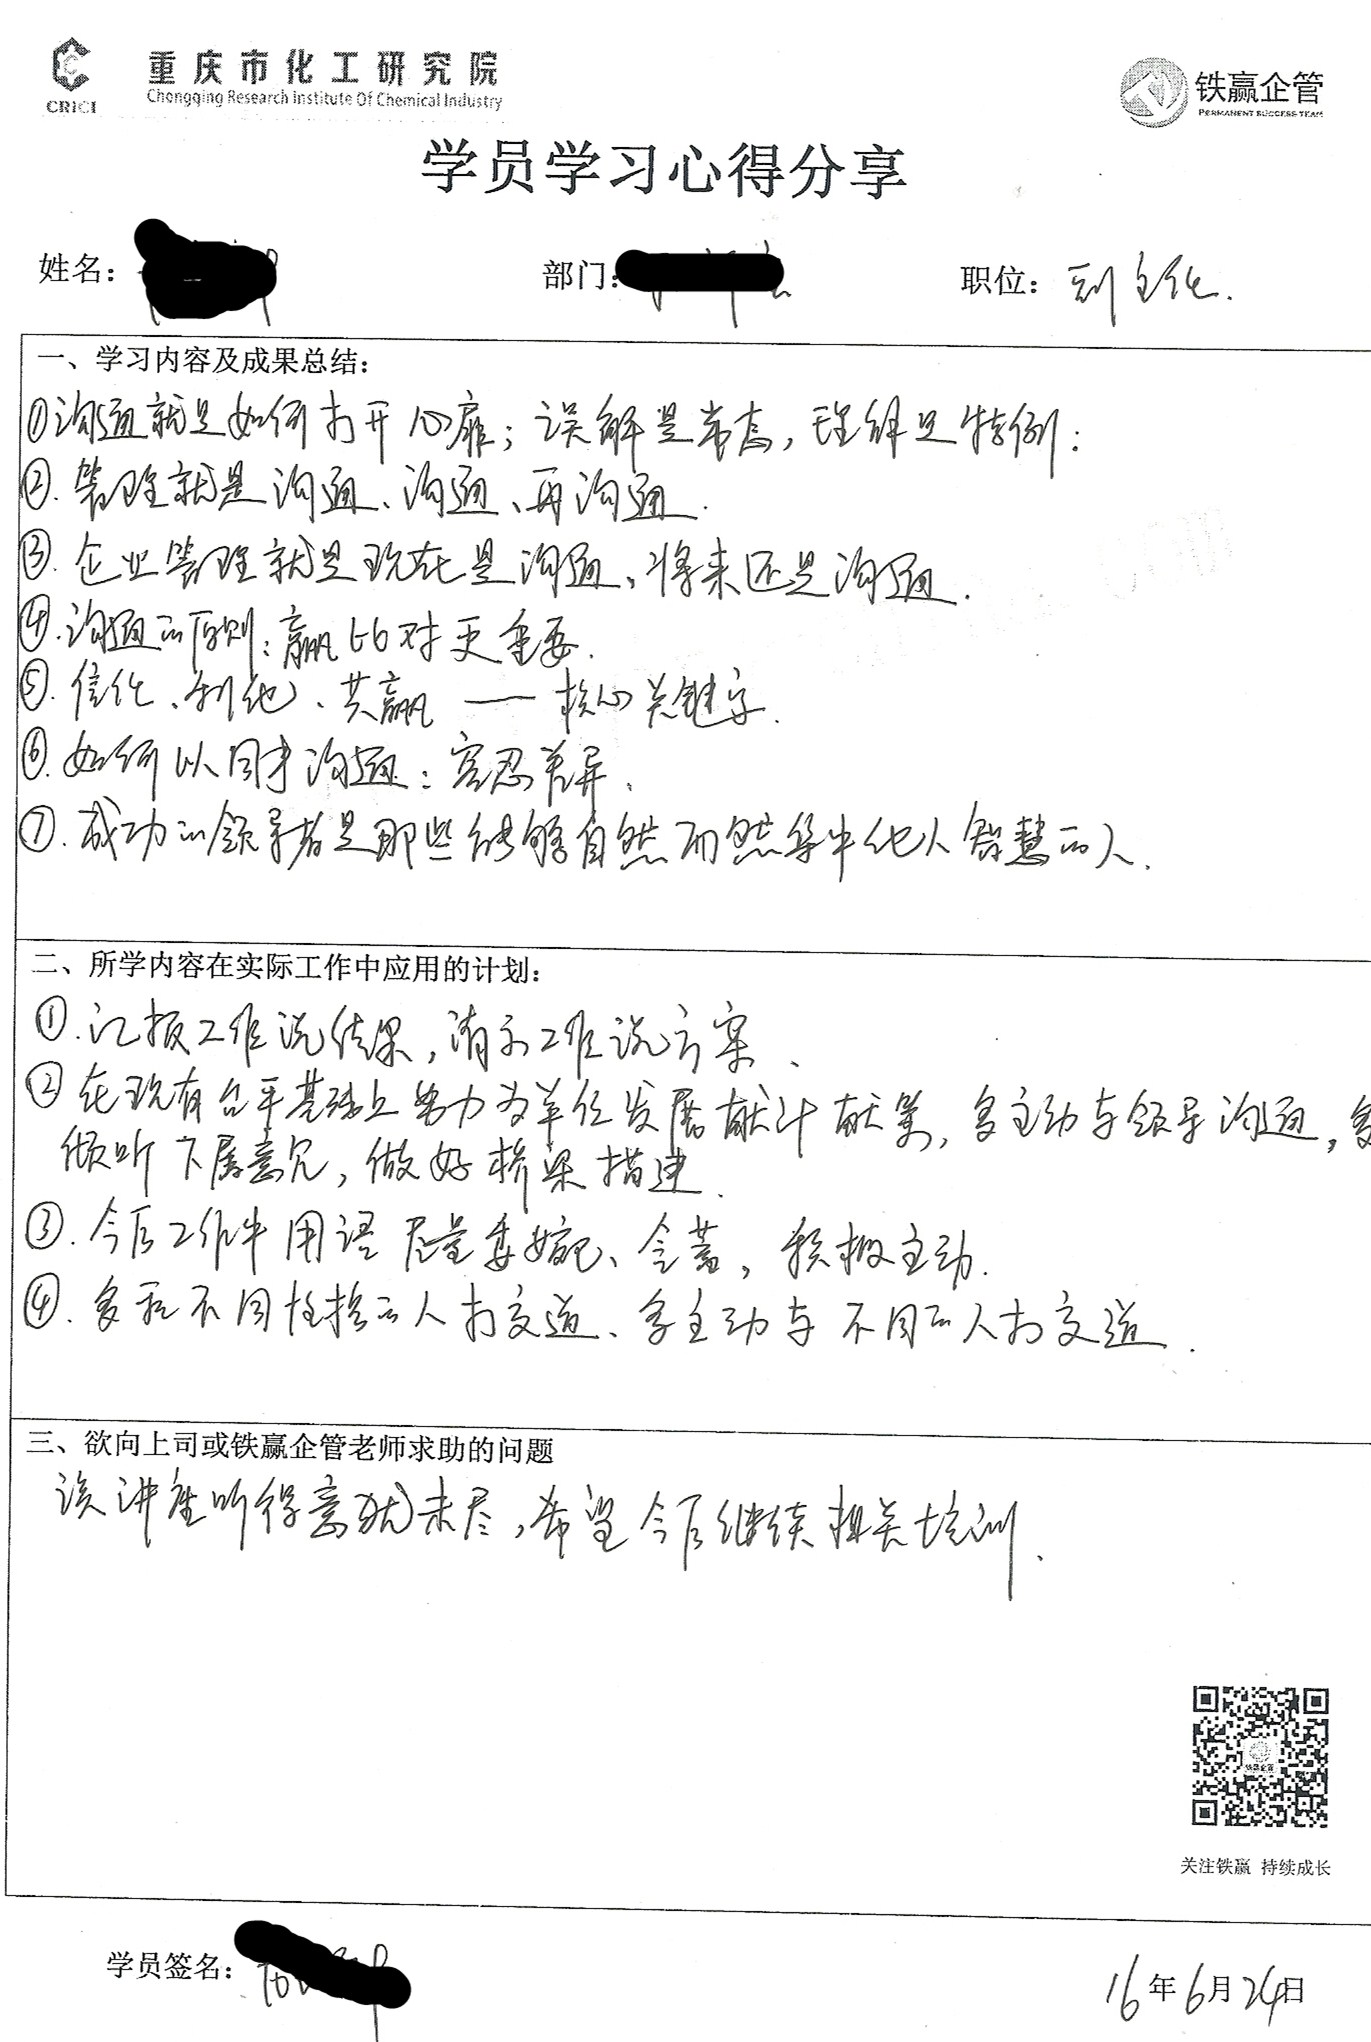 CRICI
重庆市化工研究院
Chongqing Research Institute Of Chemical Industry
铁赢企管
PERMANENT SUCCESS TEAM
学员学习心得分享
姓名： 部门： 职位：副主任.
一、学习内容及成果总结：
①沟通就是如何打开心扉；误解是常态，理解是特例：
②.管理就是沟通、沟通、再沟通.
③.企业管理就是现在是沟通、将来还是沟通.
④.沟通的原则：赢比对更重要.
⑤.信任、利他、共赢——核心关键字.
⑥.如何 沟通：容忍差异.
⑦.成功的领导者是那些能够自然而然集中他人智慧的人.
二、所学内容在实际工作中应用的计划：
①.汇报工作说结果，请示工作说方案、
②在现有台平基础上努力为单位发展献计献策，多主动与领导沟通，多
倾听下属意见，做好桥梁搭建.
③.今后工作中用语尽量委婉、含蓄，积极主动.
④.多和不同性格的人打交道、多主动与不同的人打交道.
三、欲向上司或铁赢企管老师求助的问题
该讲座听得意犹未尽，希望今后继续相关培训.
铁赢企管
关注铁赢 持续成长
学员签名：
16年6月24日